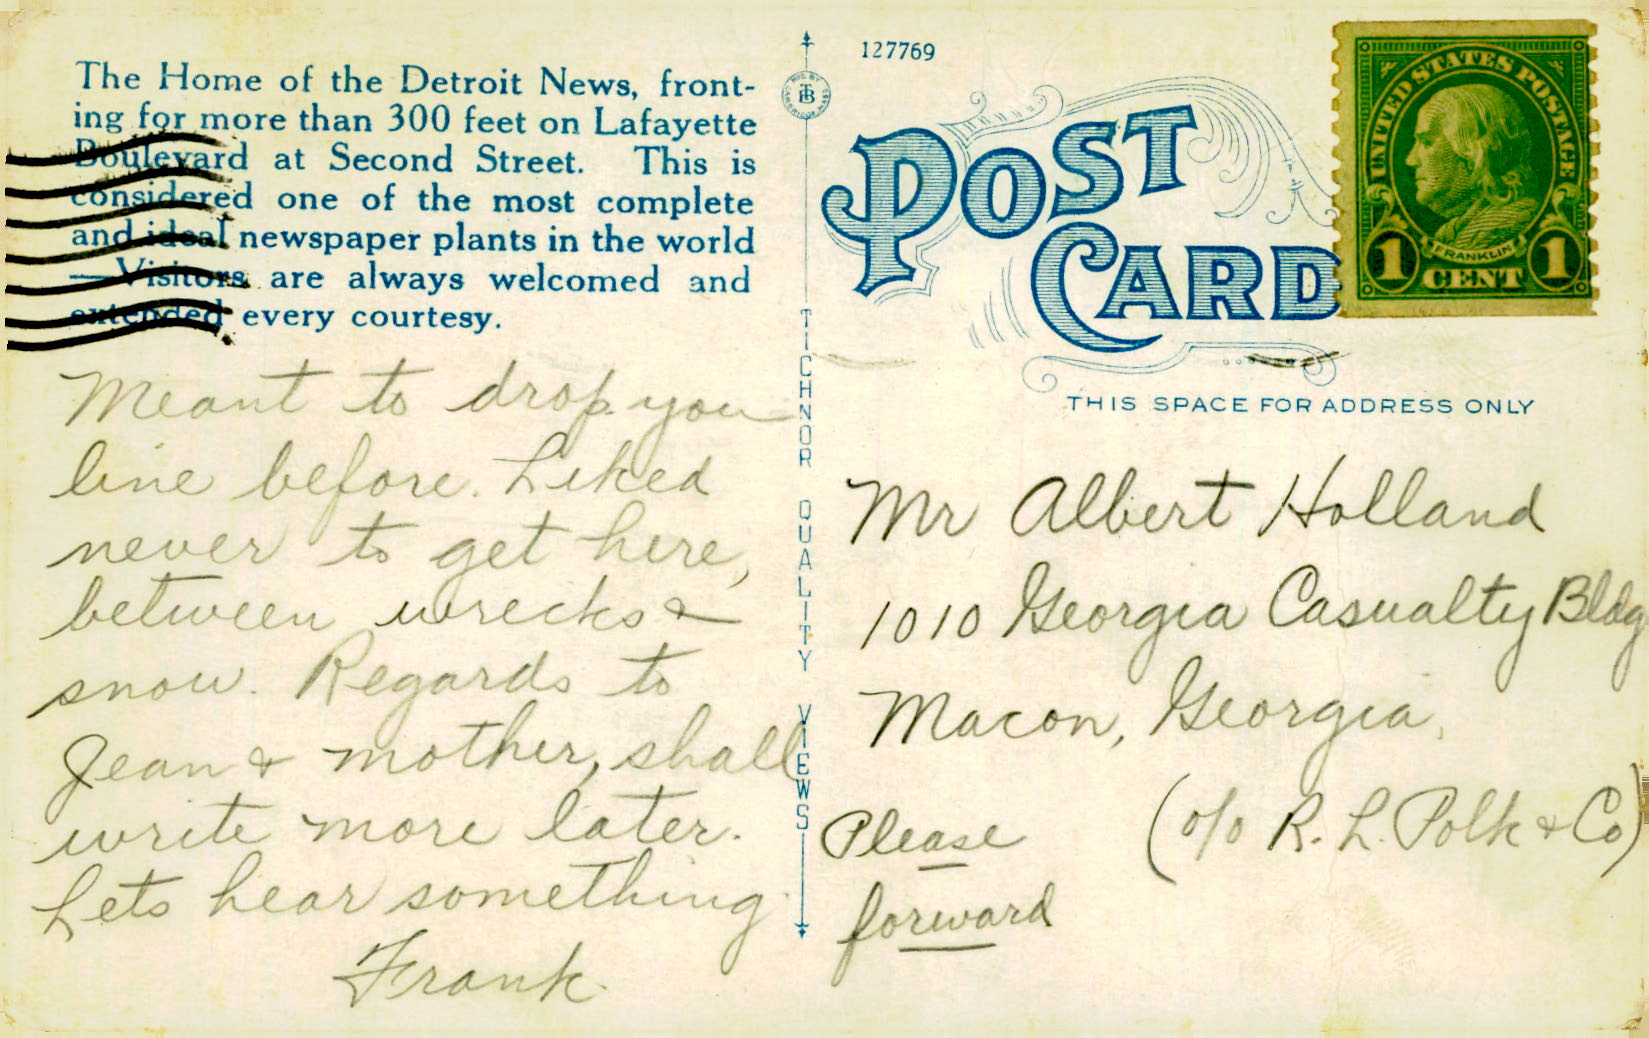 The Home of the Detroit News, front-
ing for more than 300 feet on Lafayette
Boulevard at Second Street. This is
considered one of the most complete
and ideal newspaper plants in the world
—Visitors are always welcomed and
extended every courtesy.
Meant to drop you
line before. Liked
never to get here,
between wrecks &
snow. Regards to
Jean & mother, shall
write more later.
Lets hear something
Frank.
TICHNOR QUALITY VIEWS
127769
POST
CARD
UNITED STATES POSTAGE
FRANKLIN
1 CENT 1
THIS SPACE FOR ADDRESS ONLY
Mr Albert Holland
1010 Georgia Casualty Bldg
Macon, Georgia,
(c/o R. L. Polk & Co)
Please
forward